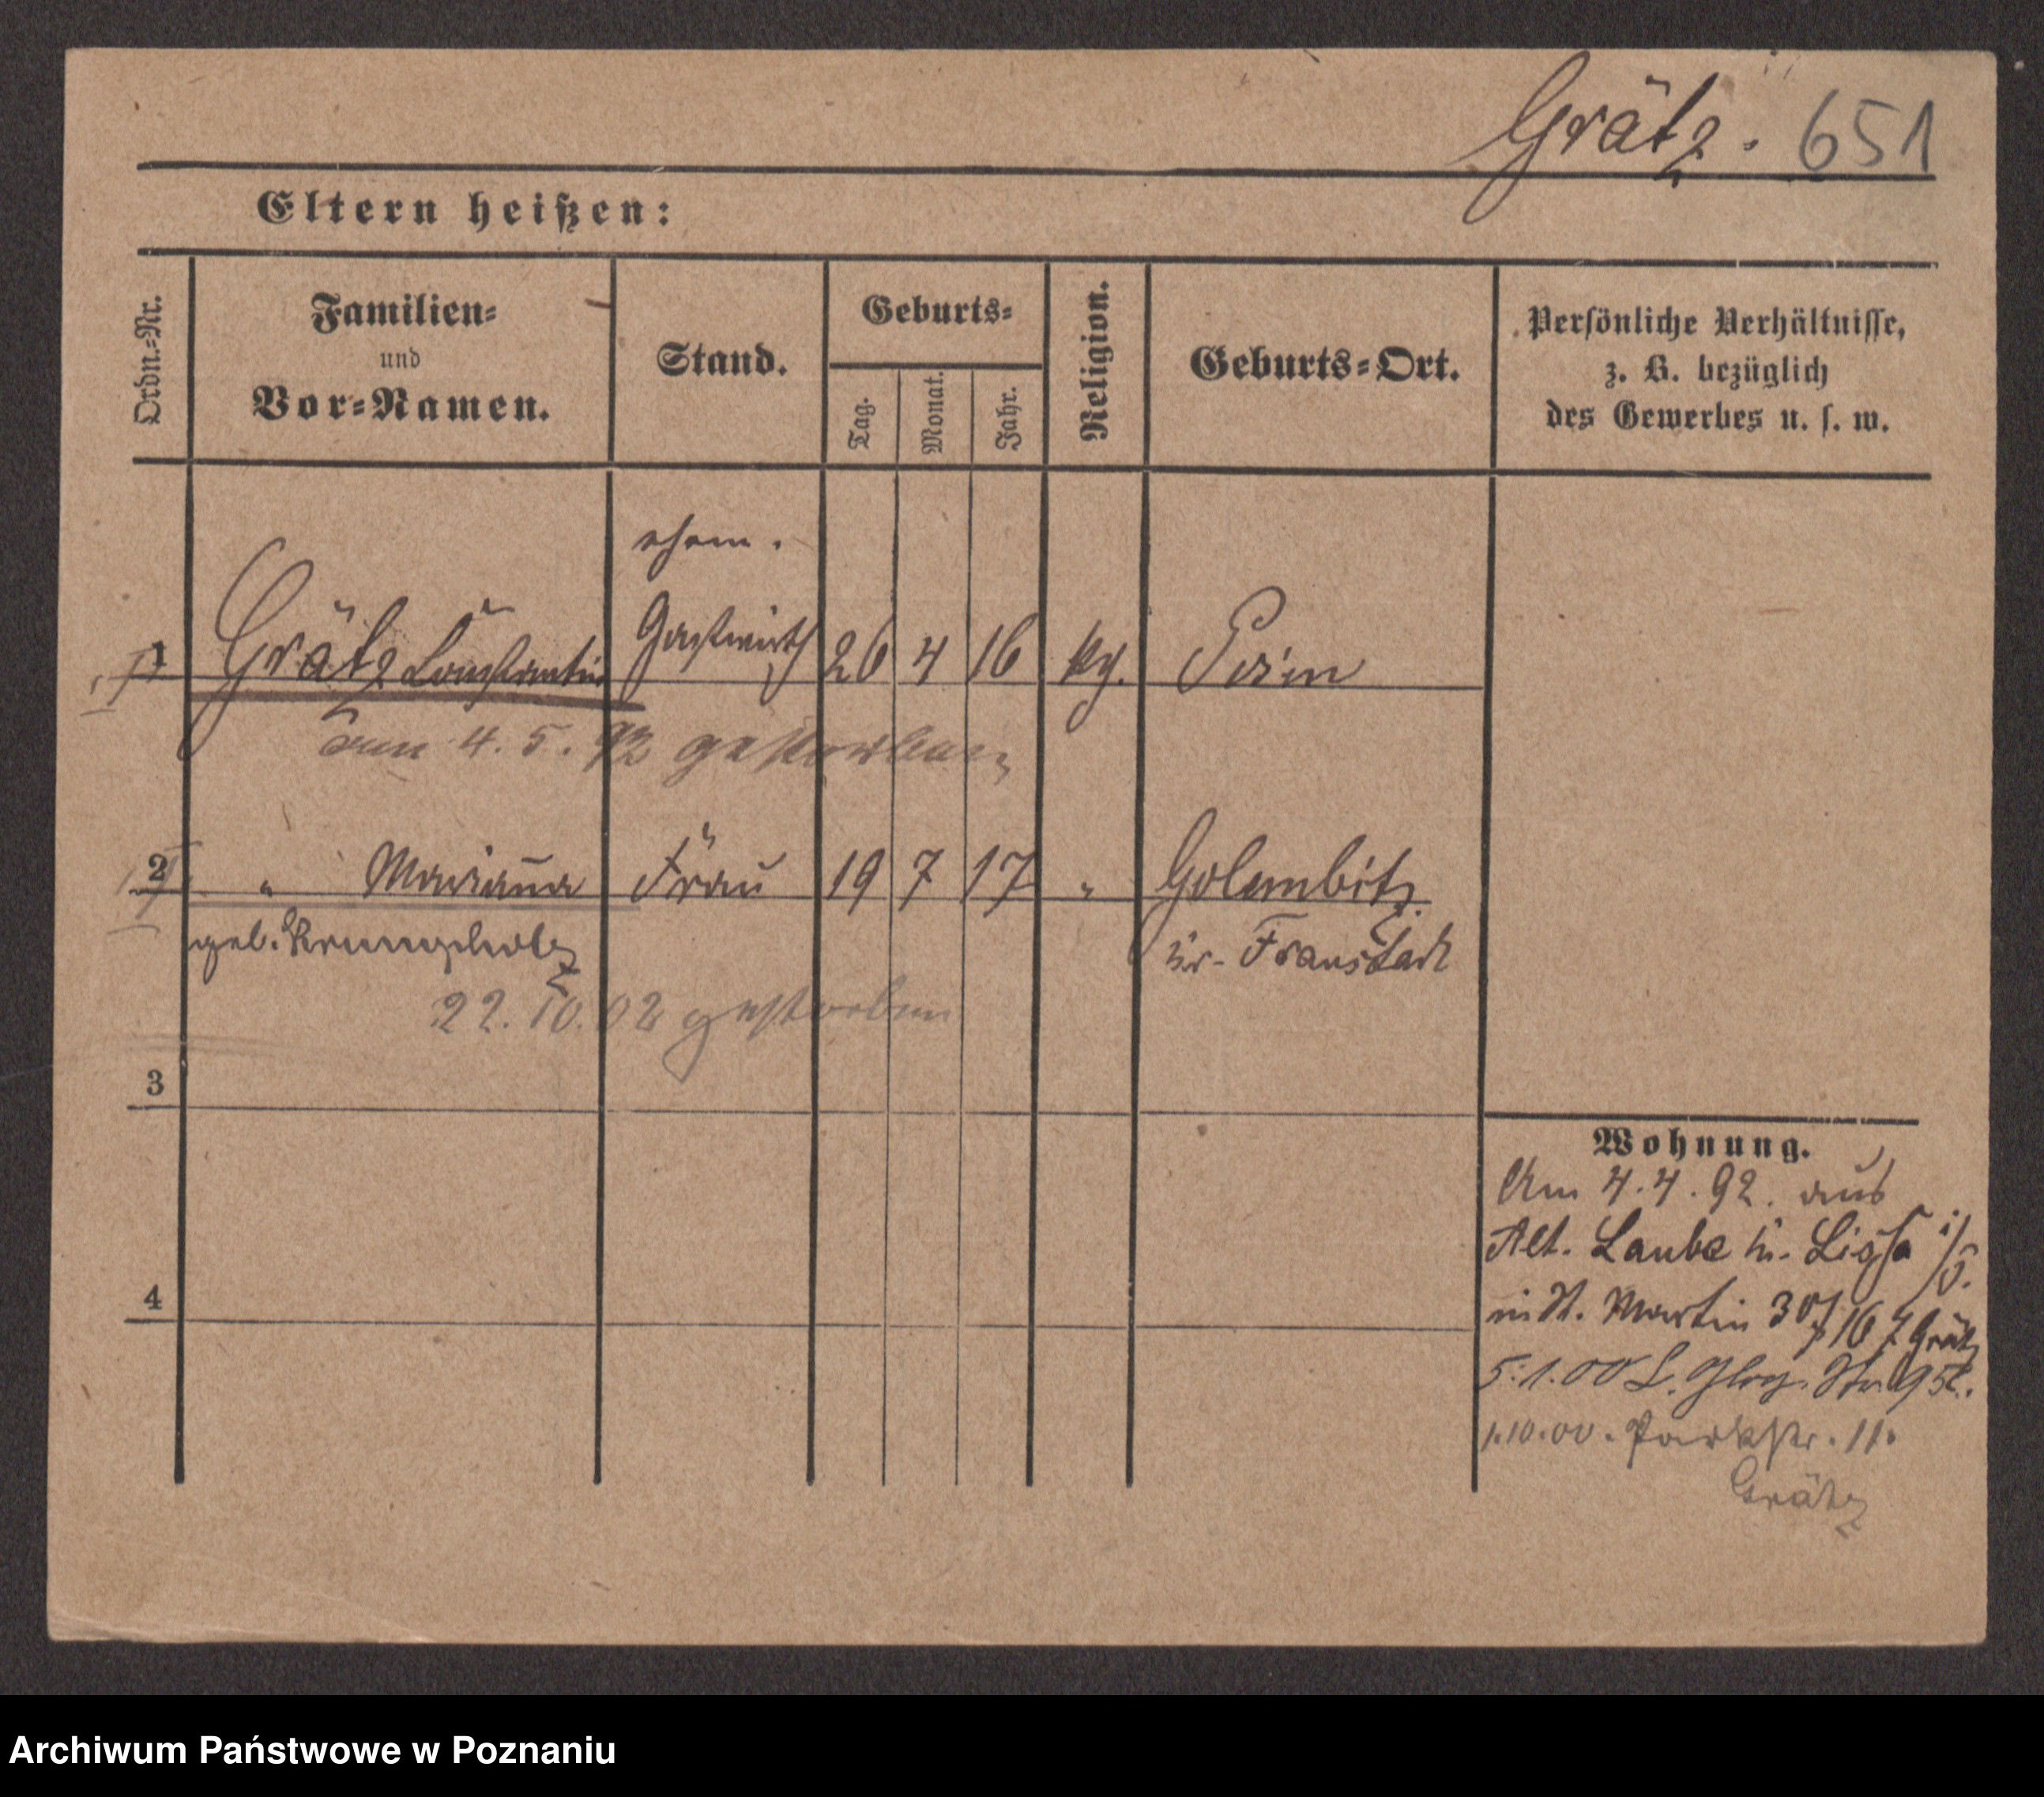 Grätz. 651
Eltern heißen:
Ordn.-Nr.
Familien-
und
Vor-Namen.
Stand.
Geburts-
Tag.
Monat.
Jahr.
Religion.
Geburts-Ort.
Persönliche Verhältnisse,
z. B. bezüglich
des Gewerbes u. s. w.
ehem.
1 Grätz Constantin Gastwirth 26 4 16 kg.
den 4. 5. 92 gestorben
2 " Marianna Frau 19 7 17 " Golembitz
geb. Krumpholz Kr. Fraustadt
22. 10. 02 gestorben
3
4
Wohnung.
Am 4.4.92. aus
Alt. Laube b. Lissa i/P.
in St. Martin 30/ 16 Grätz
5.1.00 Glog. Str. 95
1.10.00. Parkstr. 11.
Grätz
Archiwum Państwowe w Poznaniu